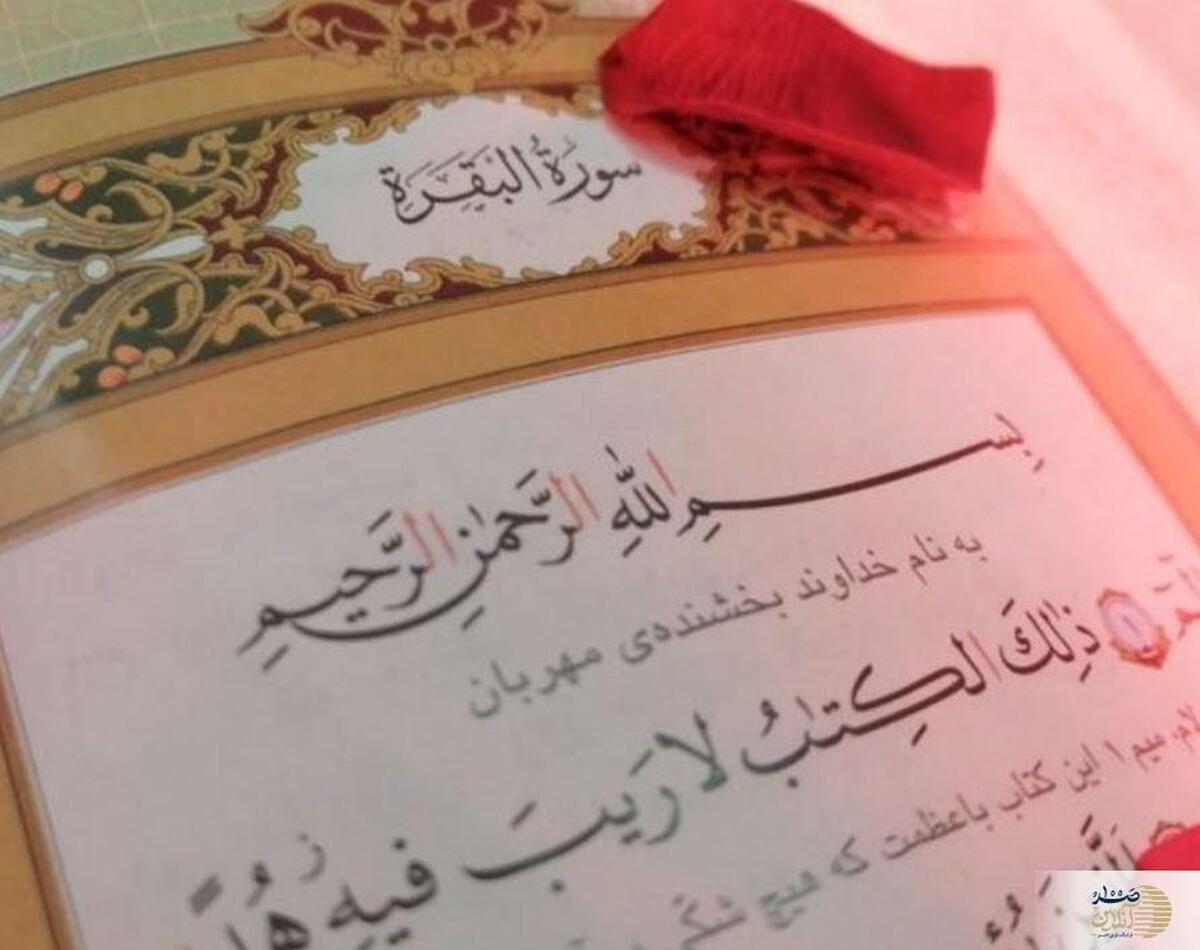 سورة البقرة
بِسمِ اللهِ الرَّحمٰنِ الرَّحیمِ
به نام خداوند بخشنده‌ی مهربان
الٓمٓ ۱ ذٰلِكَ الكِتٰبُ لا رَيبَ فيهِ هُ
لام، میم ۱ این کتاب باعظمت که هیچ شکّی
صدا
آنلاین